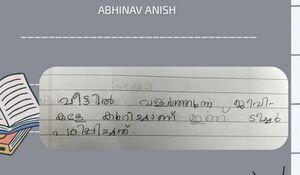 ABHINAV ANISH
വീട്ടിൽ വളർത്തുന്ന ജീവി-
കളെ കുറിച്ചാണ് ഇന്ന് ടീച്ചർ
പഠിപ്പിച്ചത്.